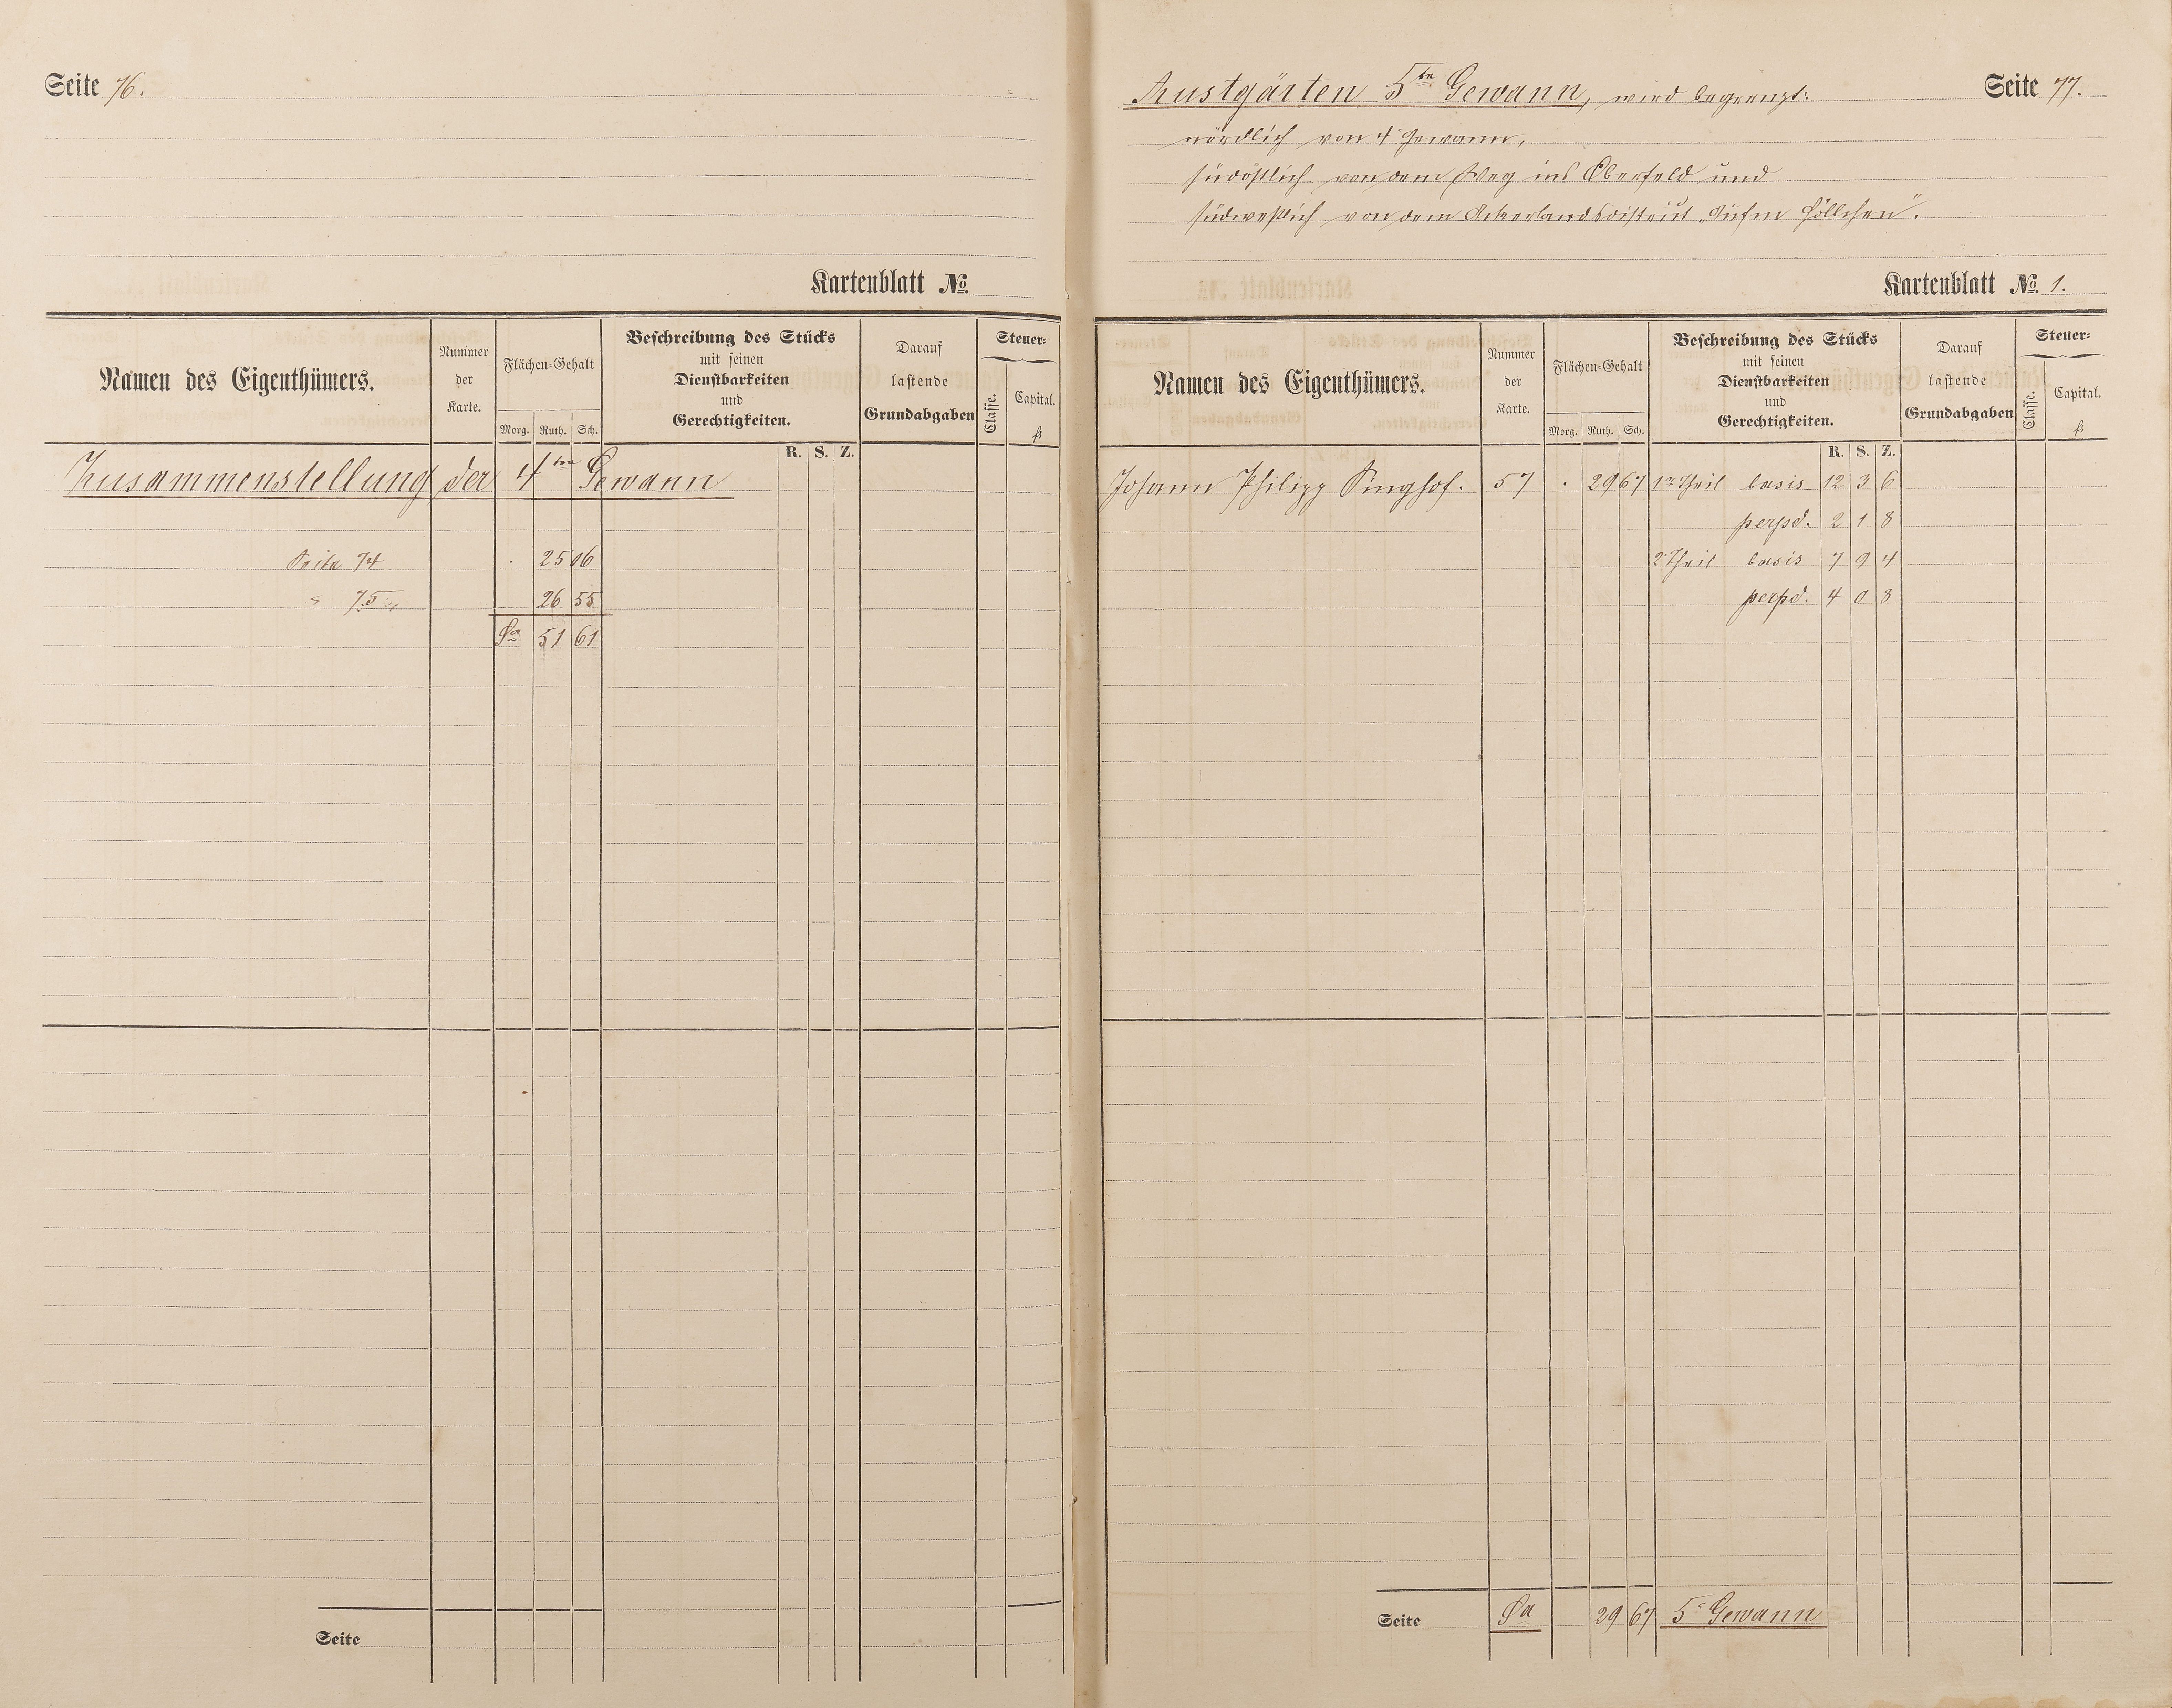 Seite 76.
Kartenblatt No.
Namen des Eigenthümers.
Nummer der Karte.
Flächen-Gehalt
Morg. Ruth. Sch.
Beschreibung des Stücks
mit seinen
Dienstbarkeiten
und
Gerechtigkeiten.
Darauf
lastende
Grundabgaben
Steuer-
Classe. Capital.
fl
R. S. Z.
Zusammenstellung der 4ten Gewann
Seite 74 . 25 06
" 75 26 55
Sa 51 61
Seite
5te Gewann, wird begrenzt: Seite 77.
nördlich von 4 Gewann,
südöstlich von dem Weg ins Oberfeld und
südwestlich von dem Ackerlandsdistrict „Aufm Höllchen".
Kartenblatt No. 1.
Namen des Eigenthümers.
Nummer der Karte.
Flächen-Gehalt
Morg. Ruth. Sch.
Beschreibung des Stücks
mit seinen
Dienstbarkeiten
und
Gerechtigkeiten.
Darauf
lastende
Grundabgaben
Steuer-
Classe. Capital.
fl
R. S. Z.
Johann Philipp Singhof. 57 . 29 67 1r Theil basis 12 3 6
perpd. 2 1 8
2 Theil basis 7 9 4
perpd. 4 0 8
Seite Sa 29 67 5e Gewann